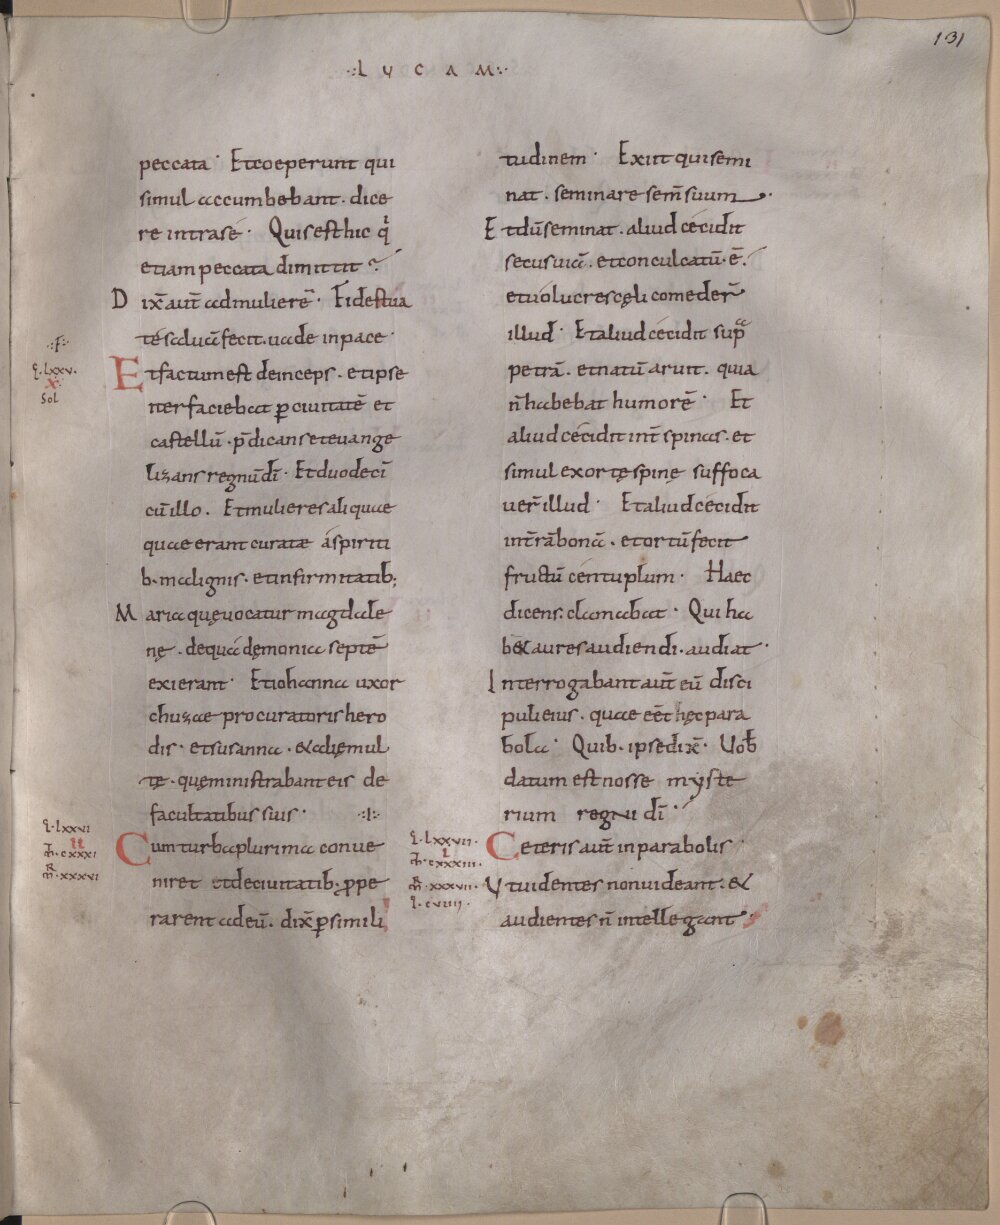 131
·:LVCAM:·
peccata· Et coeperunt qui
simul accumbebant· dice
re intra se· Quis est hic q̣ͥ
etiam peccata dimittit?
Dix̄ aut̄ ad mulierē· Fides tua
te saluā fecit· uade in pace·
Et factum est deinceps· et ipse
iter faciebat ꝑ ciuitatē et
castellū· p̄dicans et euange
lizans regnū dī· Et duodecī
cū illo· Et mulieres aliquae
quae erant curatae a spiriti
b· malignis· et infirmitatib;
Maria quę uocatur magdale
nę· de qua dęmonia septē
exierant· Et iohanna uxor
chuzae procuratoris hero
dis· et susanna· & alię mul
tę· quę ministrabant eis de
facultatibus suis·
Cum turba plurima conue
niret et de ciuitatib; ꝓpe
rarent ad eū· dix̄ ꝑ simili
tudinem· Exiit qui semi
nat· seminare sem̄ suum·
Et dū seminat· aliud cecidit
secus uiā· et conculcatū· ē·
et uolucres cęli comeder̄
illud· Et aliud cecidit supͣ
petrā· et natū aruit· quia
n̄ habebat humorē· Et
aliud cecidit int̄ spinas· et
simul exortę spinę suffoca
uer̄ illud· Et aliud cecidit
in t̄rā bonā· et ortū fecit
fructū centuplum· Haec
dicens clamabat· Qui ha
b& aures audiendi· audiat·
Interrogabant aut̄ eū disci
puli eius· quae eēt hęc para
bola· Quib· ipse dix̄· Uob̄
datum est nosse myste
rium regni dī·
Ceteris aut̄ in parabolis·
Vt uidentes non uideant· &
audientes n̄ intellegant·
·:F:·
L·LXXV·
X·
Sol
L·LXXVI
II
M̄·CXXXI
M̄R·XXXVI
L·LXXVII·
I
M̄·CXXXIII·
M̄R·XXXVII·
I·CVIIII·